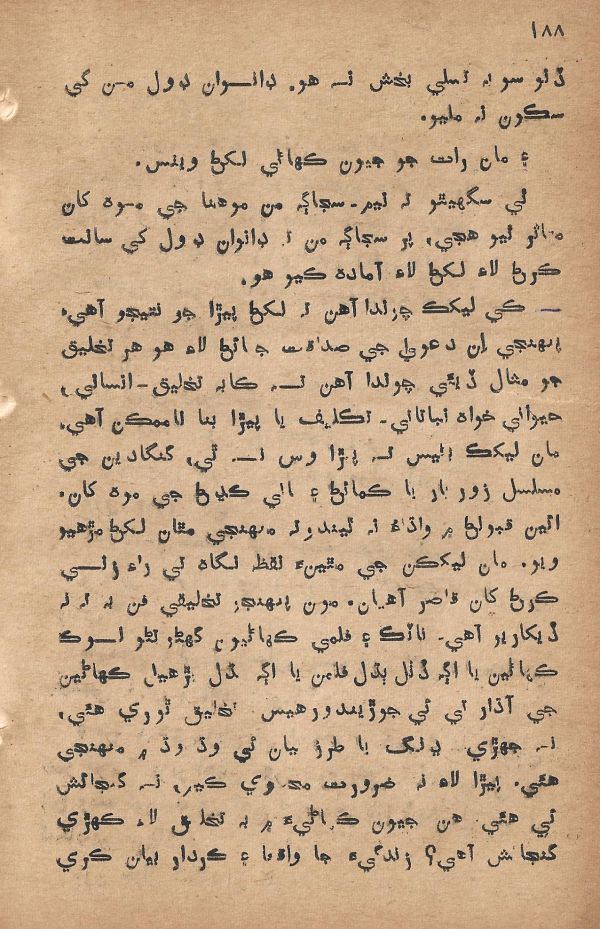 ١٨٨
ڏنو سو به تسلي بخش نه هو. ڊانوان ڊول من کي
سڪون نه مليو.
۽ مان رات جو جيون ڪهاڻي لکڻ ويٺس.
ٿي سگهيٿو ته نيم-سجاڳ من موهنا جي موه کان
متاثر ٿيو هجي، پر سجاڳ من ته ڊانوان ڊول کي سانت
ڪرڻ لاءِ لکڻ لاءِ آماده ڪيو هو.
کي ليکڪ چوندا آهن ته لکڻ پيڙا جو نتيجو آهي.
پنهنجي اِن دعويٰ جي صداقت ڄاڻڻ لاءِ هو هر تخليق
جو مثال ڏيئي چوندا آهن ته ڪابه تخليق-انساني،
حيواني خواه نباتاتي- تڪليف يا پيڙا بنا ناممڪن آهي.
مان ليکڪ ٻڻيس نه پيڙا وس نه ٿي، گنگادين جي
مسلسل زور بار يا ڪمائڻ ۽ اٿي کڍڻ جي موه کان.
ائين قبولڻ ۾ واڌاءُ نه ٿيندو ته منهنجي مٿان لکڻ مڙهيو
ويو. مان ليکڪن جي مٿينءَ نقطه نگاه تي راءِ زني
ڪرڻ کان قاصر آهيان. مون پنهنجو تخليقي فن به ته نه
ڏيکاريو آهي- ناٽڪ ۽ فلمي ڪهاڻيون گهڻو ڪري لوڪ
ڪهاڻين يا اڳ ڏٺل ٻڌل فلمن يا اڳ ڏٺل پڙهيل ڪهاڻين
جي آڌار تي ئي جوڙيندو رهيس. تخليق ٿوري هئي،
نه جهڙي. ڍنگ يا طرز بيان ئي وڌ وڌ ۾ منهنجي
هئي. پيڙا لاءِ نه ضرورت محسوس ڪيم، نه گنجائش
ئي هئي. هن جيون ڪهاڻيءَ ۾ به تخليق لاءِ ڪهڙي
گنجائش آهي؟ زندگيءَ جا واقعا ۽ ڪردار بيان ڪري